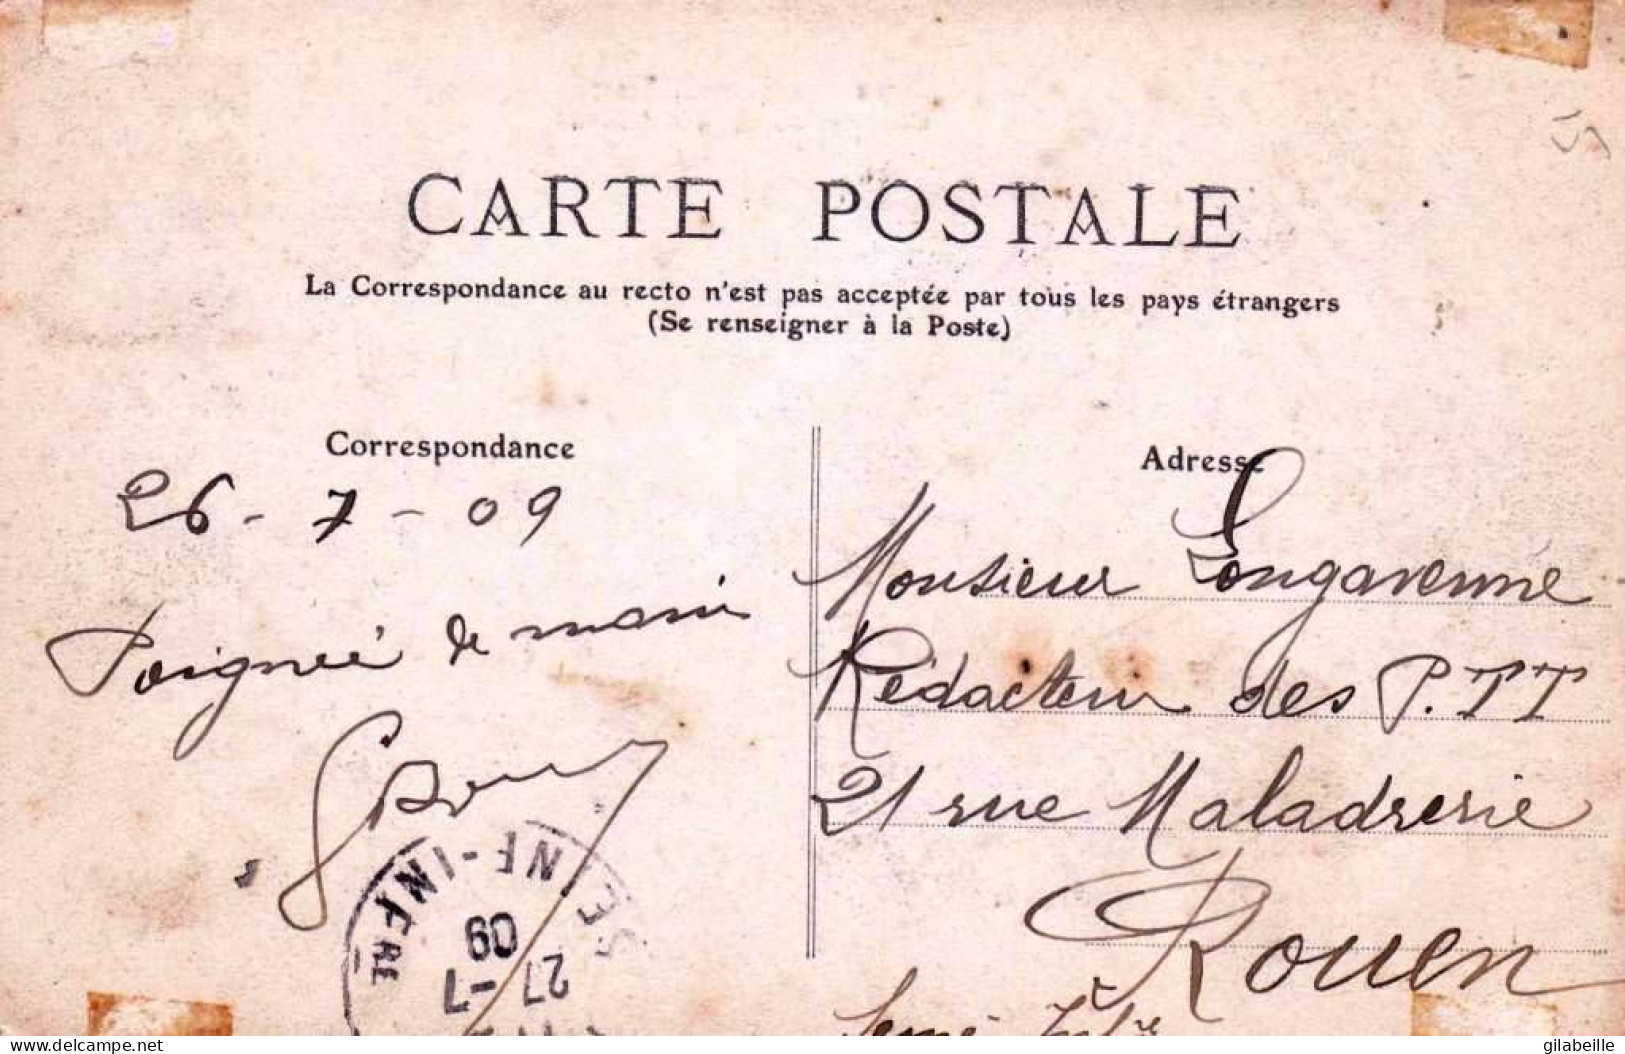 CARTE POSTALE
La Correspondance au recto n'est pas acceptée par tous les pays étrangers
(Se renseigner à la Poste)
Correspondance
26 - 7 - 09
Poignée de main
Adresse
Monsieur Longavenne
Rédacteur des P.TT
21 rue Maladrerie
Rouen
INF-INFRE
27 -7
09
delcampe.net
gilabeille